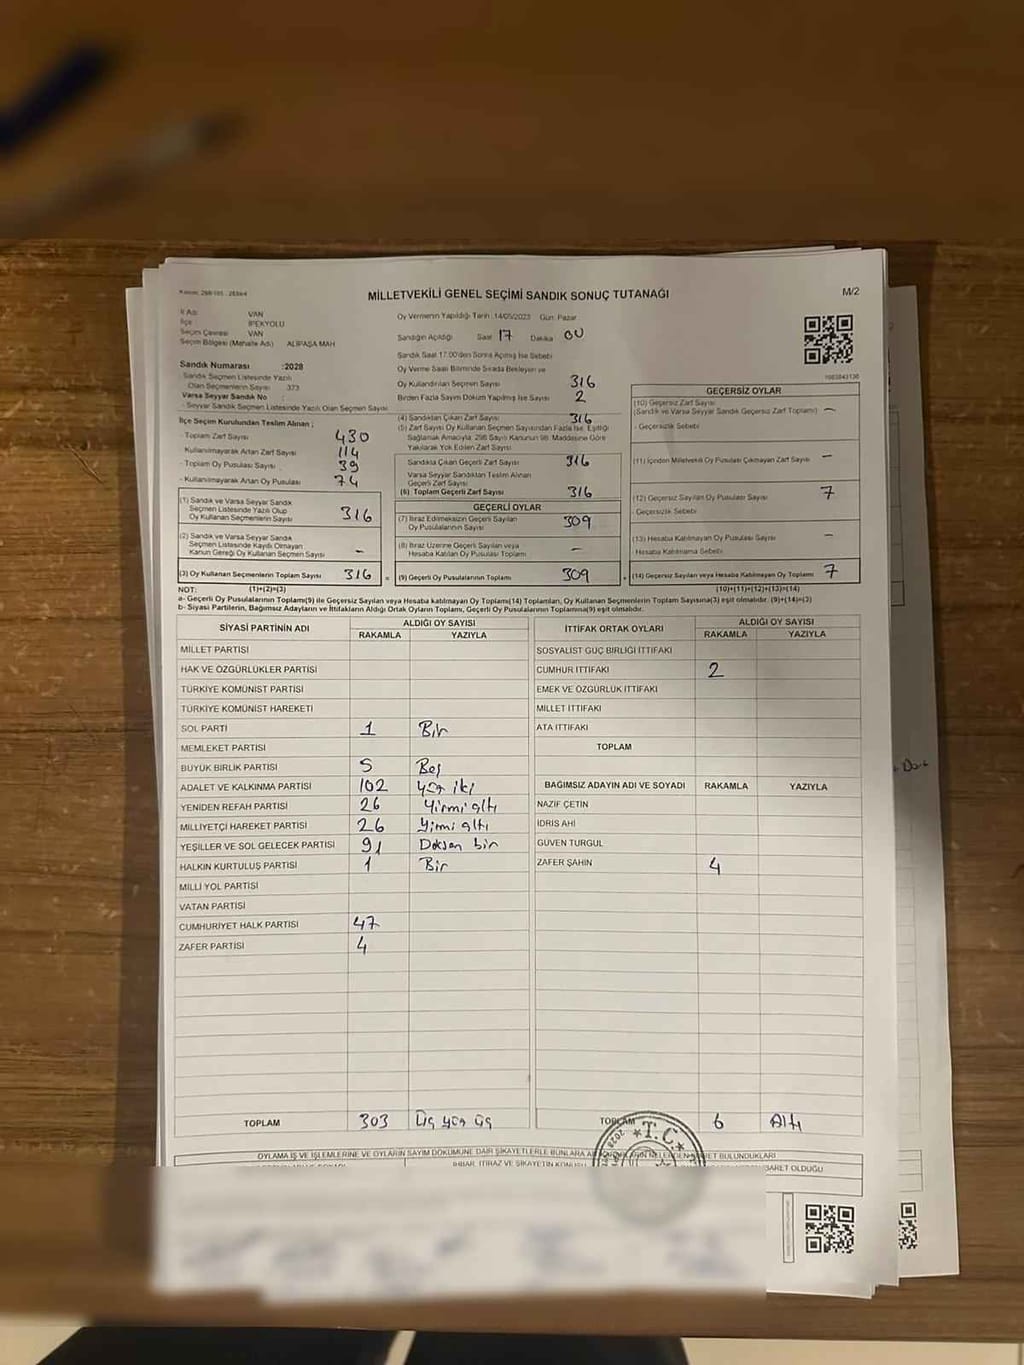 Kanun: 298/105 - 2839/4
MİLLETVEKİLİ GENEL SEÇİMİ SANDIK SONUÇ TUTANAĞI
M/2
İl Adı VAN
İlçe İPEKYOLU
Seçim Çevresi VAN
Seçim Bölgesi (Mahalle Adı) ALİPAŞA MAH
Sandık Numarası :2028
Sandık Seçmen Listesinde Yazılı
Olan Seçmenlerin Sayısı 373
Varsa Seyyar Sandık No :
- Seyyar Sandık Seçmen Listesinde Yazılı Olan Seçmen Sayısı
İlçe Seçim Kurulundan Teslim Alınan ;
- Toplam Zarf Sayısı : 430
- Kullanılmayarak Artan Zarf Sayısı : 114
- Toplam Oy Pusulası Sayısı : 39
- Kullanılmayarak Artan Oy Pusulası : 74
(1) Sandık ve Varsa Seyyar Sandık
Seçmen Listesinde Yazılı Olup
Oy Kullanan Seçmenlerin Sayısı 316
(2) Sandık ve Varsa Seyyar Sandık
Seçmen Listesinde Kayıtlı Olmayan
Kanun Gereği Oy Kullanan Seçmen Sayısı -
(3) Oy Kullanan Seçmenlerin Toplam Sayısı 316 =
Oy Vermenin Yapıldığı Tarih :14/05/2023 Gün: Pazar
Sandığın Açıldığı Saat 17 Dakika 00
Sandık Saat 17.00'den Sonra Açılmış İse Sebebi
Oy Verme Saati Bitiminde Sırada Bekleyen ve
Oy Kullandırılan Seçmen Sayısı 316
Birden Fazla Sayım Döküm Yapılmış İse Sayısı 2
(4) Sandıktan Çıkan Zarf Sayısı 316
(5) Zarf Sayısı Oy Kullanan Seçmen Sayısından Fazla İse, Eşitliği
Sağlamak Amacıyla, 298 Sayılı Kanunun 98. Maddesine Göre
Yakılarak Yok Edilen Zarf Sayısı
Sandıkta Çıkan Geçerli Zarf Sayısı 316
Varsa Seyyar Sandıktan Teslim Alınan
Geçerli Zarf Sayısı
(6) Toplam Geçerli Zarf Sayısı 316
GEÇERLİ OYLAR
(7) İtiraz Edilmeksizin Geçerli Sayılan
Oy Pusulalarının Sayısı 309
(8) İtiraz Üzerine Geçerli Sayılan veya
Hesaba Katılan Oy Pusulası Toplamı -
(9) Geçerli Oy Pusulalarının Toplamı 309 +
1083843136
GEÇERSİZ OYLAR
(10) Geçersiz Zarf Sayısı
(Sandık ve Varsa Seyyar Sandık Geçersiz Zarf Toplamı) -
- Geçersizlik Sebebi:
(11) İçinden Milletvekili Oy Pusulası Çıkmayan Zarf Sayısı -
(12) Geçersiz Sayılan Oy Pusulası Sayısı 7
- Geçersizlik Sebebi
(13) Hesaba Katılmayan Oy Pusulası Sayısı -
Hesaba Katılmama Sebebi
(14) Geçersiz Sayılan veya Hesaba Katılmayan Oy Toplamı 7
NOT: (1)+(2)=(3) (10)+(11)+(12)+(13)=(14)
a- Geçerli Oy Pusulalarının Toplamı(9) ile Geçersiz Sayılan veya Hesaba katılmayan Oy Toplamı(14) Toplamları, Oy Kullanan Seçmenlerin Toplam Sayısına(3) eşit olmalıdır. (9)+(14)=(3)
b- Siyasi Partilerin, Bağımsız Adayların ve İttifakların Aldığı Ortak Oyların Toplamı, Geçerli Oy Pusulalarının Toplamına(9) eşit olmalıdır.
SİYASİ PARTİNİN ADI ALDIĞI OY SAYISI
RAKAMLA YAZIYLA
MİLLET PARTİSİ
HAK VE ÖZGÜRLÜKLER PARTİSİ
TÜRKİYE KOMÜNİST PARTİSİ
TÜRKİYE KOMÜNİST HAREKETİ
SOL PARTİ 1 Bir
MEMLEKET PARTİSİ
BÜYÜK BİRLİK PARTİSİ 5 Beş
ADALET VE KALKINMA PARTİSİ 102 Yüz iki
YENİDEN REFAH PARTİSİ 26 Yirmi altı
MİLLİYETÇİ HAREKET PARTİSİ 26 Yirmi altı
YEŞİLLER VE SOL GELECEK PARTİSİ 91 Doksan bir
HALKIN KURTULUŞ PARTİSİ 1 Bir
MİLLİ YOL PARTİSİ
VATAN PARTİSİ
CUMHURİYET HALK PARTİSİ 47
ZAFER PARTİSİ 4
TOPLAM 303 Üç yüz üç
İTTİFAK ORTAK OYLARI ALDIĞI OY SAYISI
RAKAMLA YAZIYLA
SOSYALİST GÜÇ BİRLİĞİ İTTİFAKI
CUMHUR İTTİFAKI 2
EMEK VE ÖZGÜRLÜK İTTİFAKI
MİLLET İTTİFAKI
ATA İTTİFAKI
TOPLAM
BAĞIMSIZ ADAYIN ADI VE SOYADI RAKAMLA YAZIYLA
NAZİF ÇETİN
İDRİS AHİ
GÜVEN TURGUL
ZAFER ŞAHİN 4
TOPLAM 6 Altı
T.C.
2028
OYLAMA İŞ VE İŞLEMLERİNE VE OYLARIN SAYIM DÖKÜMÜNE DAİR ŞİKAYETLERLE BUNLARA
BULUNDUKLARI
İHBAR, İTİRAZ VE ŞİKAYETİN KONUSU
İBARET OLDUĞU